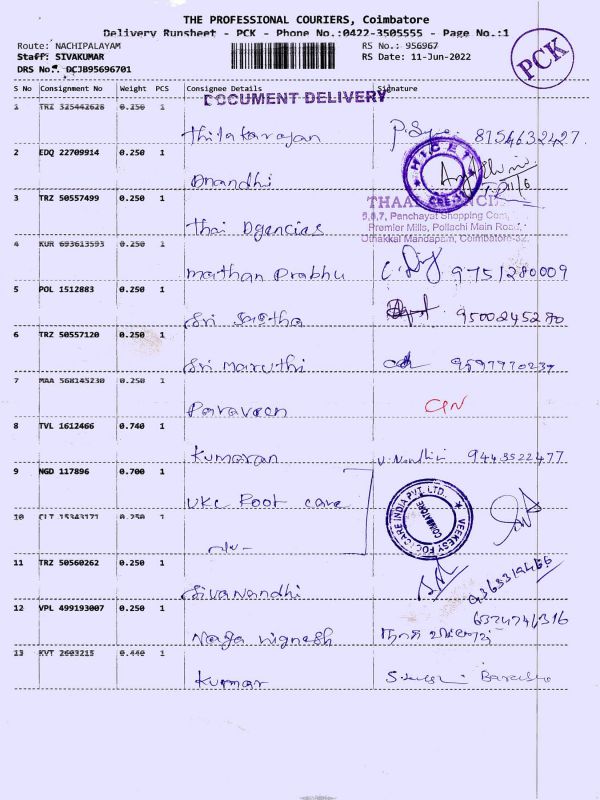 THE PROFESSIONAL COURIERS, Coimbatore
Delivery Runsheet - PCK - Phone No.:0422-3505555 - Page No.:1
Route: NACHIPALAYAM
RS No.: 956967
Staff: SIVAKUMAR
RS Date: 11-Jun-2022
DRS No.: DCJB95696701
PCK
S No Consignment No Weight PCS Consignee Details Signature
DOCUMENT DELIVERY
1 TRZ 325442628 0.250 1
Thilakarajan 8154632427
2 EDQ 22709914 0.250 1
Anandhi
HICET
3 TRZ 50557499 0.250 1
Thai Agencies
5,6,7, Panchayat Shopping Com,
Premier Mills, Pollachi Main Road,
Othakkal Mandapam, Coimbatore-32.
4 KUR 693613593 0.250 1
Mathan Prabhu 9751280009
5 POL 1512883 0.250 1
Sri Sastha 9500245280
6 TRZ 50557120 0.250 1
Sri Maruthi
7 MAA 568145230 0.250 1
Paraveen
8 TVL 1612466 0.740 1
Kumaran V. Nandhini 9443522477
9 NGD 117896 0.700 1
VKC Foot care
VEEKESY FOOTCARE INDIA PVT. LTD.
COIMBATORE
10 CLT 15343171 0.250 1
11 TRZ 50560262 0.250 1
Sivanandhi
12 VPL 499193007 0.250 1
Naga Vignesh 6374746316
13 KVT 2603215 0.440 1
Kumar